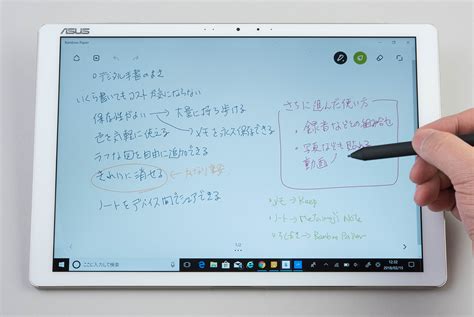 ASUS
Bamboo Paper
○デジタル手書のよさ
いくら書いてもコストが気にならない
保存性がよい
大量に持ち歩ける
色を気軽に使える
メモを永久保存できる
ラフな図を自由に追加できる
きれいに消せる
ノートをデバイス間でシェアできる
さらに進んだ使い方
・録音などとの組み合せ
・写真なども貼れる
動画
メモ→Keep
ノート→Metamoji Note
→Bamboo Paper
1/2
ここに入力して検索
12:32
2018/02/15